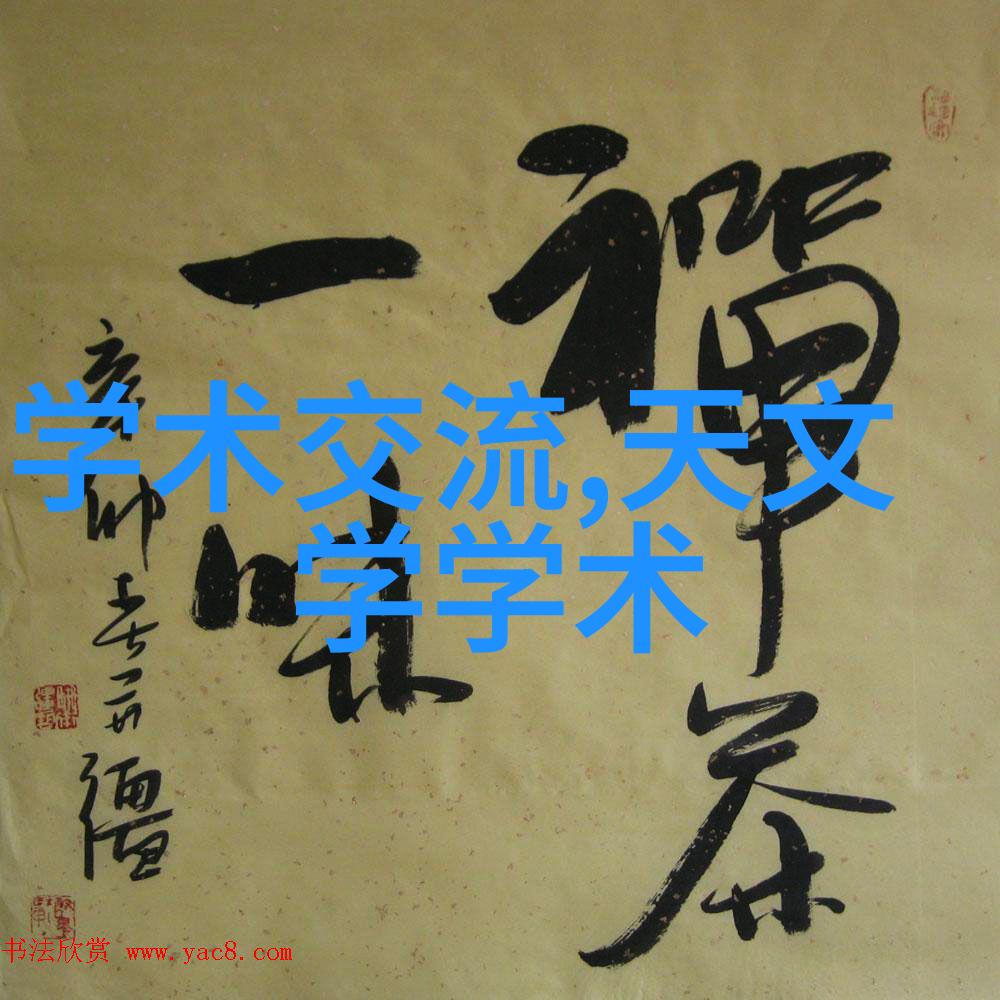 禅茶
一味
学术交流,天文
学学术
书法欣赏 www.yac8.com